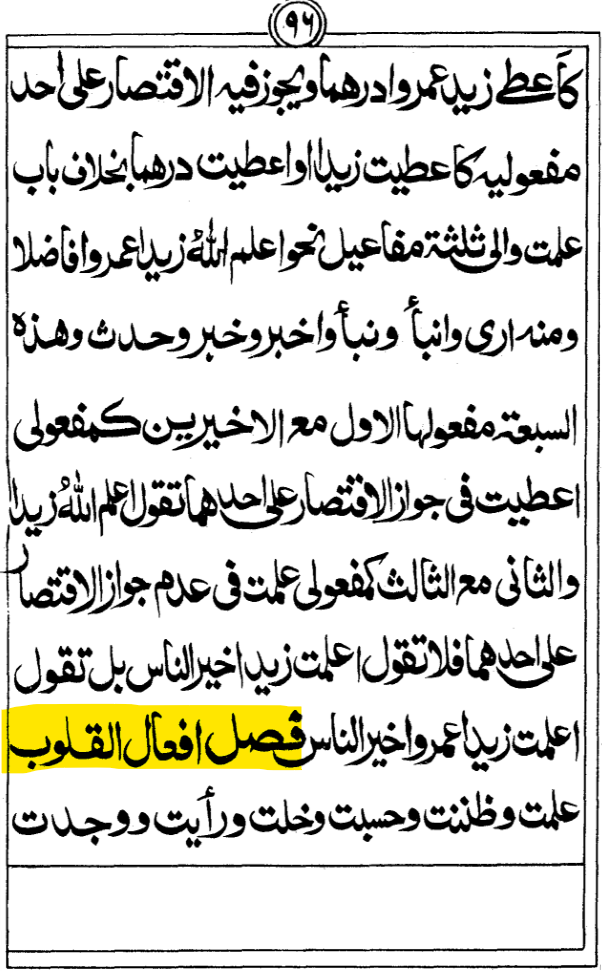 ۹۶
کاَعطے زید عمروا درهما ویجوز فیه الاقتصار علی احد
مفعولیه کاعطیت زیدا او اعطیت درهما بخلاف باب
علمت والی ثلثة مفاعیل نحو اعلم اللهُ زیدا عمروا فاضلا
ومنه اری وانبأ ونبأ واخبر وخبر وحدث وهذه
السبعة مفعولها الاول مع الاخیرین کمفعولی
اعطیت فی جواز الاقتصار علی احدهما تقول اعلم اللهُ زیدا
والثانی مع الثالث کمفعولی علمت فی عدم جواز الاقتصار
علی احدهما فلا تقول اعلمت زیدا خیر الناس بل تقول
اعلمت زیدا عمروا خیر الناس فصل افعال القلوب
علمت وظننت وحسبت وخلت ورأیت ووجدت